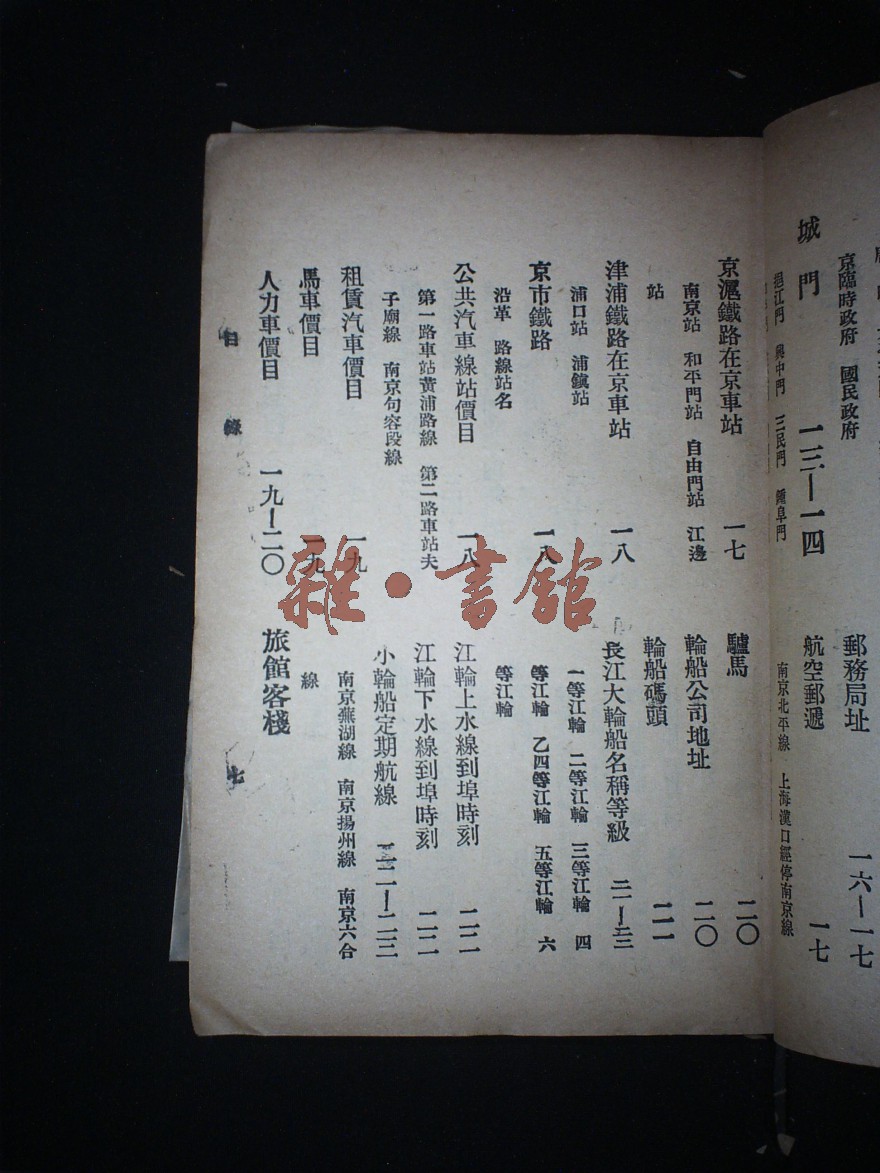 京臨時政府 國民政府
城門 一三—一四
挹江門 興中門 三民門 鍾阜門
郵務局址 一六—一七
航空郵遞 一七
南京北平線 上海漢口經停南京線
京滬鐵路在京車站 一七
南京站 和平門站 自由門站 江邊
站
津浦鐵路在京車站 一八
浦口站 浦鎮站
京市鐵路 一八
沿革 路線站名
公共汽車線站價目 一八
第一路車站黄浦路線 第二路車站夫
子廟線 南京句容段線
租賃汽車價目 一九
馬車價目 一九
人力車價目 一九—二〇
驢馬 二〇
輪船公司地址 二〇
輪船碼頭 二一
長江大輪船名稱等級
一等江輪 二等江輪 三等江輪 四
等江輪 乙四等江輪 五等江輪 六
等江輪
江輪上水線到埠時刻 二二
江輪下水線到埠時刻 二二
小輪船定期航線 二二—二三
南京蕪湖線 南京揚州線 南京六合
線
旅館客棧
目錄 七
雜·書館